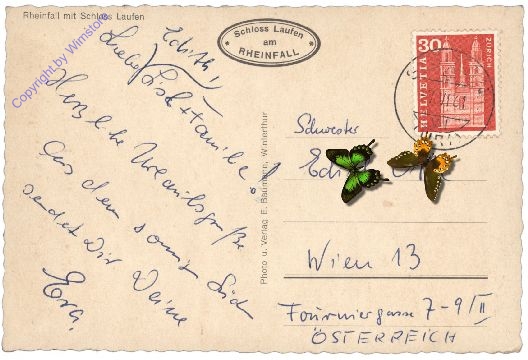 Rheinfall mit Schloss Laufen
Copyright by Wimstore
Schloss Laufen
am
RHEINFALL
Liebe Edith,
Liebe Familie!
Herzliche Urlaubsgrüße
aus dem Süd
sendet Dir Deine
Eva.
Photo u. Verlag E. Baumann, Winterthur
HELVETIA
30
ZÜRICH
Schwester
Wien 13
Fourniergasse 7-9/II
ÖSTERREICH